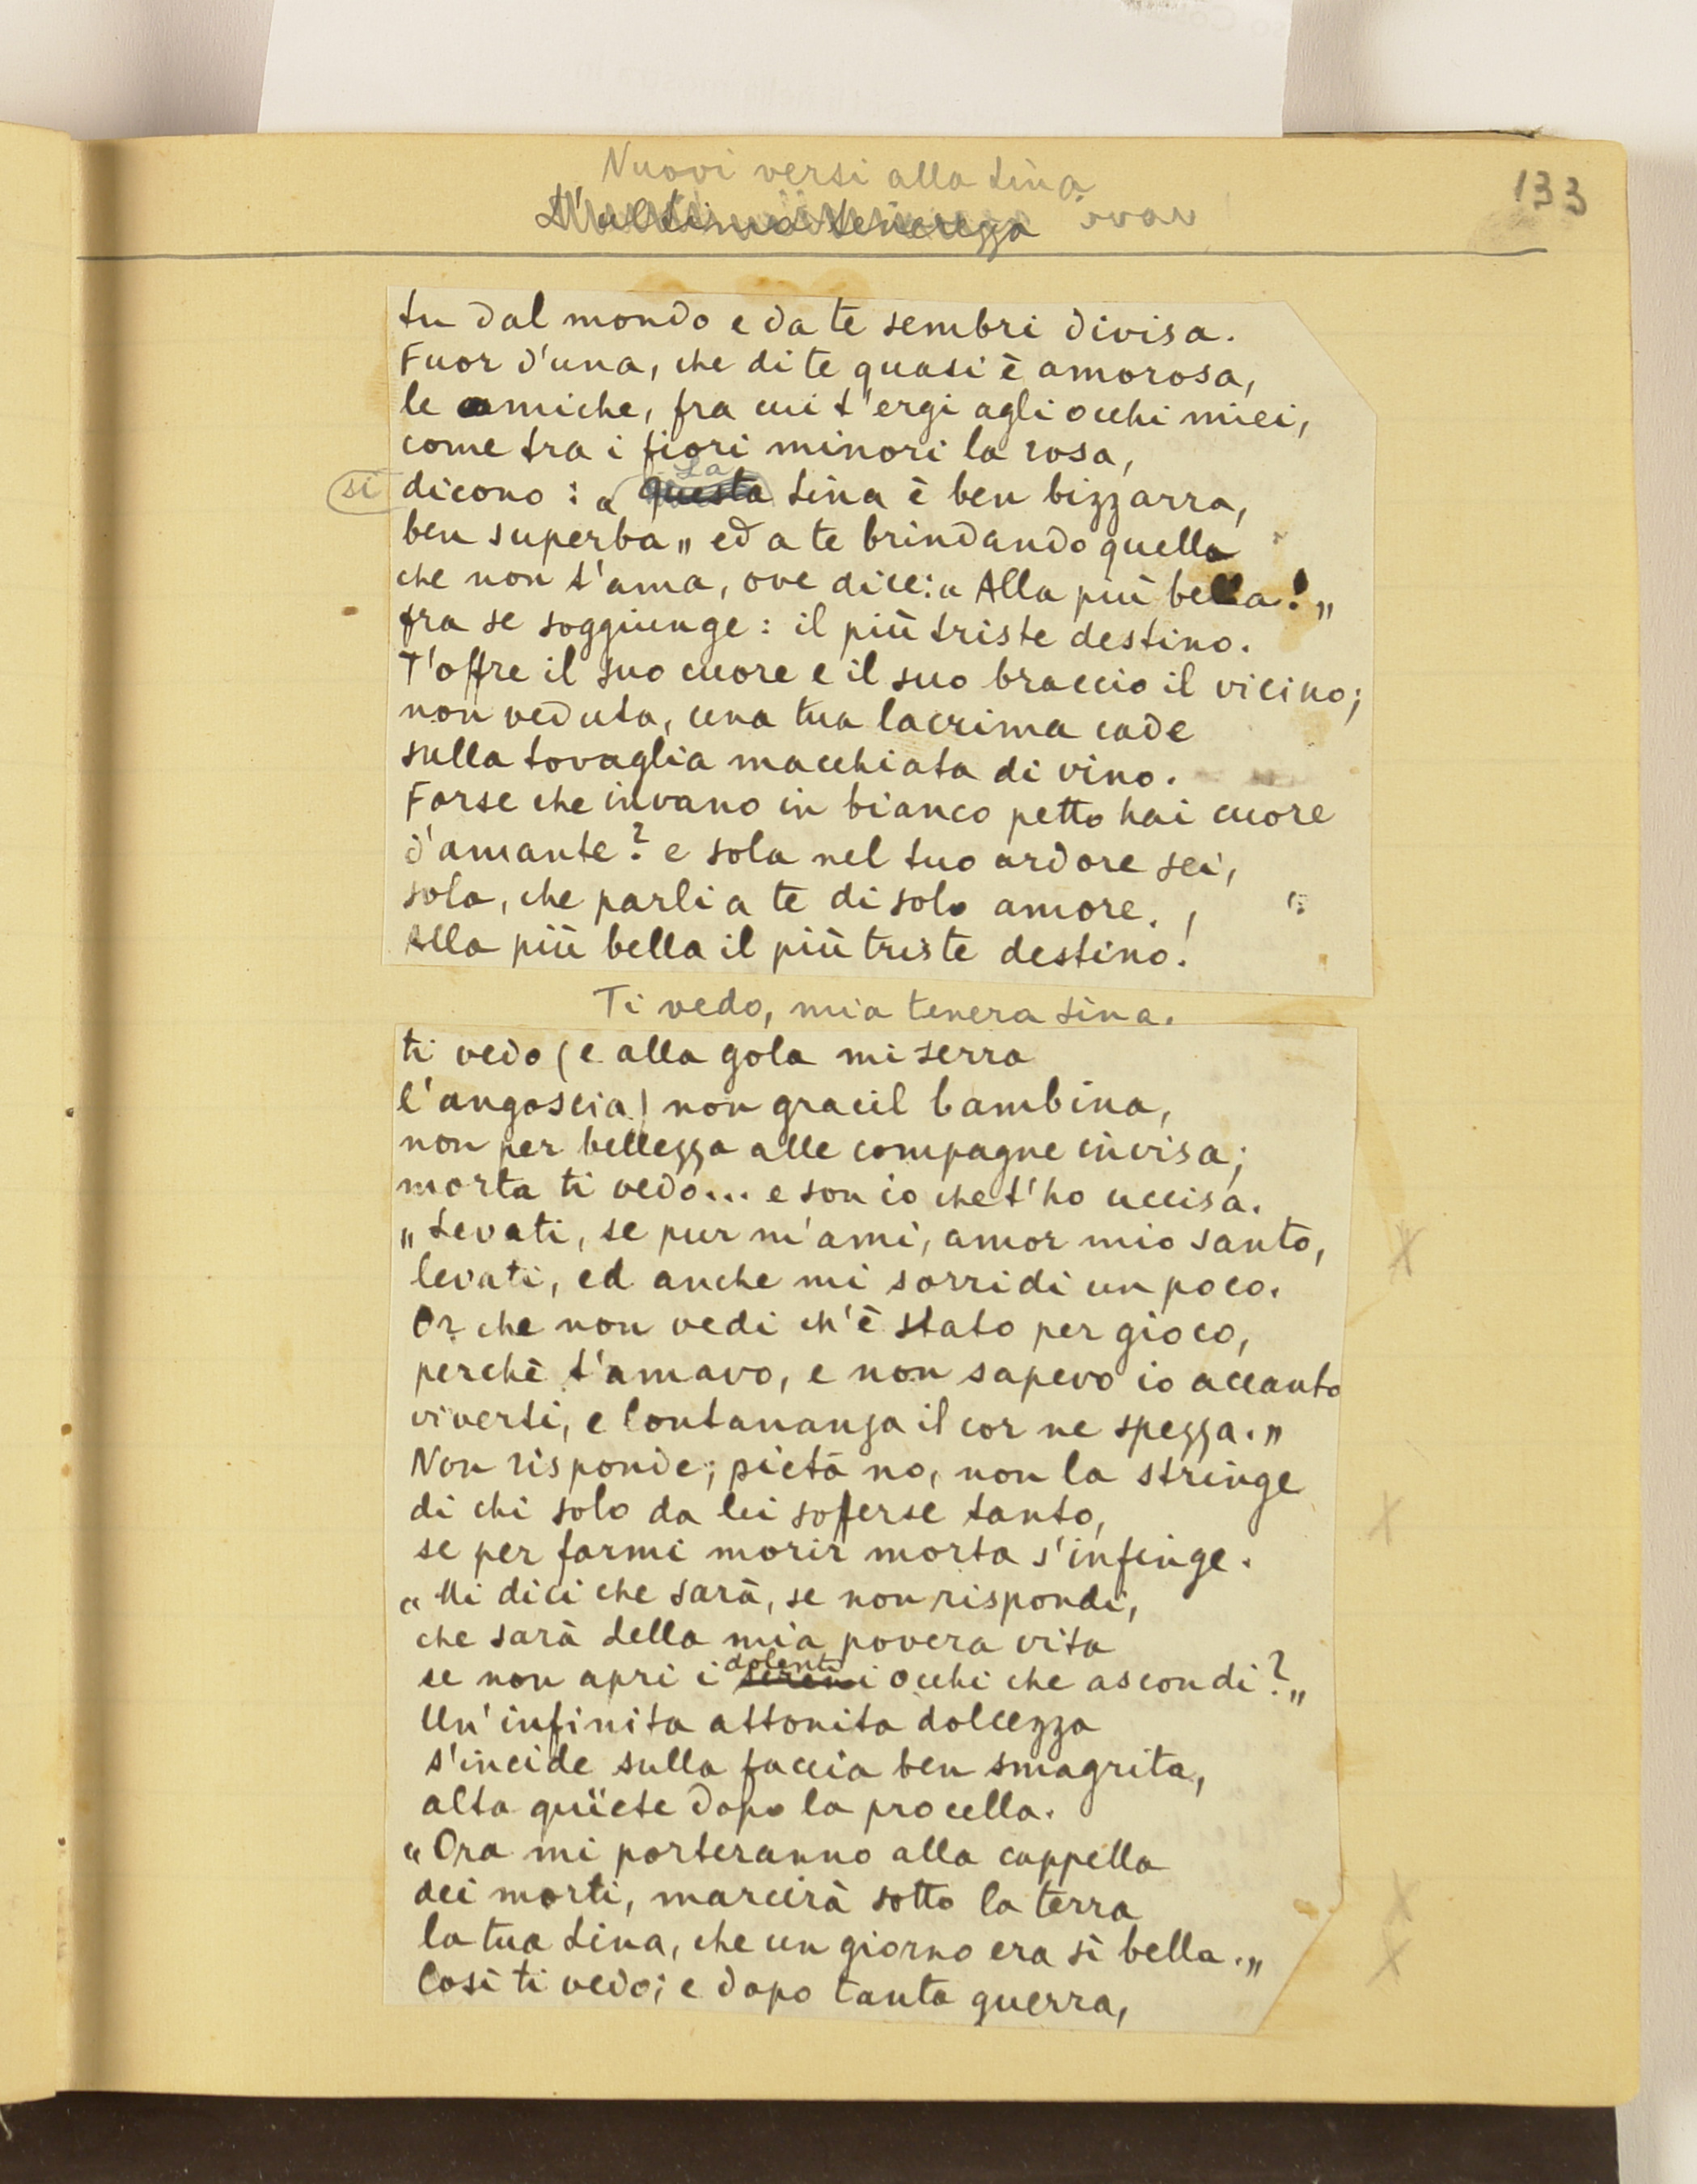 Nuovi versi alla Lina
133
L'ultima tenerezza
tu dal mondo e da te sembri divisa.
Fuor d'una, che di te quasi è amorosa,
le amiche, fra cui t'ergi agli occhi miei,
come tra i fiori minori la rosa,
si dicono : „ questa La Lina è ben bizzarra,
ben superba „ ed a te brindando quella
che non t'ama, ove dice: „ Alla più bella! „
fra se soggiunge : il più triste destino.
T'offre il suo cuore e il suo braccio il vicino;
non veduta, una tua lacrima cade
sulla tovaglia macchiata di vino.
Forse che invano in bianco petto hai cuore
d'amante? e sola nel tuo ardore sei,
sola, che parli a te di solo amore.
Alla più bella il più triste destino!
Ti vedo, mia tenera Lina.
ti vedo (e alla gola mi serra
l'angoscia) non gracil bambina,
non per bellezza alle compagne invisa;
morta ti vedo... e son io che t'ho uccisa.
„ Levati, se pur m'ami, amor mio santo,
levati, ed anche mi sorridi un poco.
Or che non vedi ch'è stato per gioco,
perchè t'amavo, e non sapevo io accanto
viverti, e lontananza il cor ne spezza. „
Non risponde; pietà no, non la stringe
di chi solo da lei sofferse tanto,
se per farmi morir morta s'infinge.
„ Mi dici che sarà, se non rispondi,
che sarà della mia povera vita
se non apri i sereni dolenti occhi che ascondi? „
Un'infinita attonita dolcezza
s'incide sulla faccia ben smagrita,
alta quïete dopo la procella.
„ Ora mi porteranno alla cappella
dei morti, marcirà sotto la terra
la tua Lina, che un giorno era sì bella. „
Così ti vedo; e dopo tanta guerra,